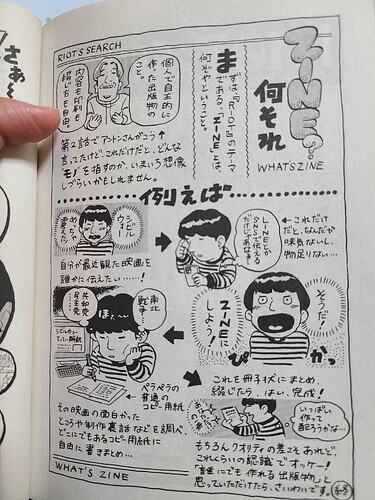 RIOT'S SEARCH
ZINEって?
何それ
WHAT'S ZINE
まずは、『RIOT』のテーマ
である、"ZINE"とは
何ぞやということ。
個人で自主的に
作った出版物の
こと。
内容も印刷も
綴じ方も自由。
第2話でアントンさんがこう↑
言ってたけど、これだけだと、どんな
"モノ"を指すのか、いまいち想像
しづらいかもしれません。
例えば
シビル
ウォー
めっちゃ
震えた!
自分が最近観た映画を
誰かに伝えたい……!
LINEとか
SNSで伝える
だけじゃあなぁ…
←これだけ
だと、なんだか
味気ないし、
物足りない…
そうだ
ZINEに
しよう!
ぴ
かっ
南北
戦争…
共和党
民主党
ほぇ〜
ペラペラの
普通の
コピー用紙
その映画の面白かった
ところや制作裏話などを調べ、
どこにでもあるコピー用紙に
自由に書きまとめ…
これを冊子状にまとめ、
綴じたら、はい、完成!
いっぱい
作って
配ろうかな…
もちろんクオリティの差こそあれど、
これくらいの認識でオッケー!
「誰にでも作れる出版物」と
思っていただけたら、さいわいです。
WHAT'S ZINE
さぁ〜